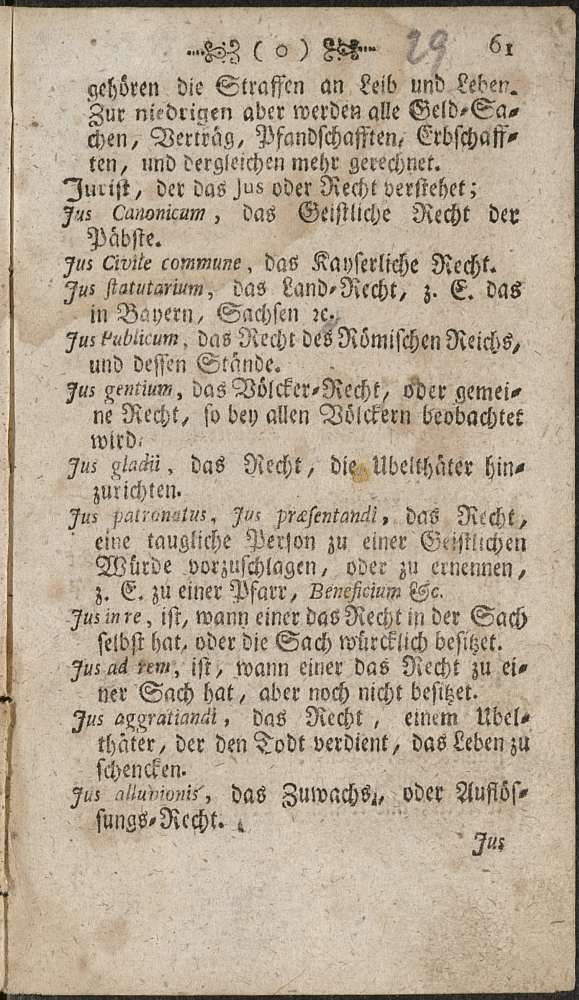 ( o ) 29 61
gehören die Straffen an Leib und Leben.
Zur niedrigen aber werden alle Geld-Sa-
chen, Verträg, Pfandschafften, Erbschaff-
ten, und dergleichen mehr gerechnet.
Jurist, der das Jus oder Recht verstehet;
Jus Canonicum, das Geistliche Recht der
Päbste.
Jus Civile commune, das Kayserliche Recht.
Jus statutarium, das Land-Recht, z. E. das
in Bayern, Sachsen ꝛc.
Jus Publicum, das Recht des Römischen Reichs,
und dessen Stände.
Jus gentium, das Völcker-Recht, oder gemei-
ne Recht, so bey allen Völckern beobachtet
wird.
Jus gladii, das Recht, die Ubelthäter hin-
zurichten.
Jus patronatus, Jus præsentandi, das Recht,
eine taugliche Person zu einer Geistlichen
Würde vorzuschlagen, oder zu ernennen,
z. E. zu einer Pfarr, Beneficium &c.
Jus in re, ist, wann einer das Recht in der Sach
selbst hat, oder die Sach würcklich besitzet.
Jus ad rem, ist, wann einer das Recht zu ei-
ner Sach hat, aber noch nicht besitzet.
Jus aggratiandi, das Recht, einem Ubel-
thäter, der den Todt verdient, das Leben zu
schencken.
Jus alluvionis, das Zuwachs-, oder Auflös-
sungs-Recht.
Jus